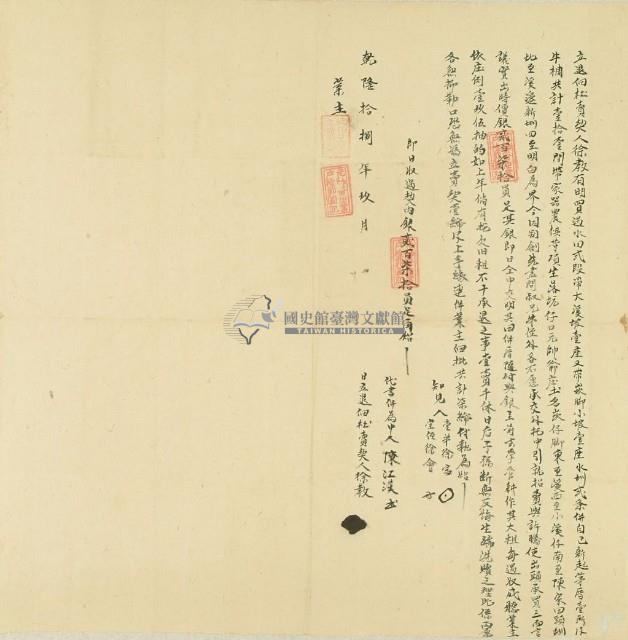 立退佃杜賣契人徐教有明買過水田貳段帶大溪坡壹座又帶崁腳小坡壹座水圳貳條併自己新起茅厝壹所
牛稠共計壹拾壹間帶家器農俱等項生落坑仔口元帥爺庄土名崁仔腳東至溪西至小溪仔南至陳家田頭圳
北至溪邊新圳四至明白為界今因別創先盡問叔兄弟侄外各不愿承交外托中引就招賣與許騰使出頭承買三面言
議實出時價銀貳百柒拾員足其銀即日仝中交明其田併厝隨付與銀主前去掌管耕作其大租每週收成聽業主
依庄例壹玖伍抽的如上年倘有拖欠旧租不干承退之事壹賣千休日后子孫斷無反悔生端洗贖之理此係兩愿
各無抑勒口恐無憑立賣契壹紙及上手繳連仟業主佃批共計柒紙付執為炤
即日收過契內銀貳百柒拾員足再炤
知見人 堂弟徐富
堂侄徐會
代書併為中人 陳江漢
日立退佃杜賣契人徐教
乾隆拾捌年玖月
業主
國史館臺灣文獻館
TAIWAN HISTORICA